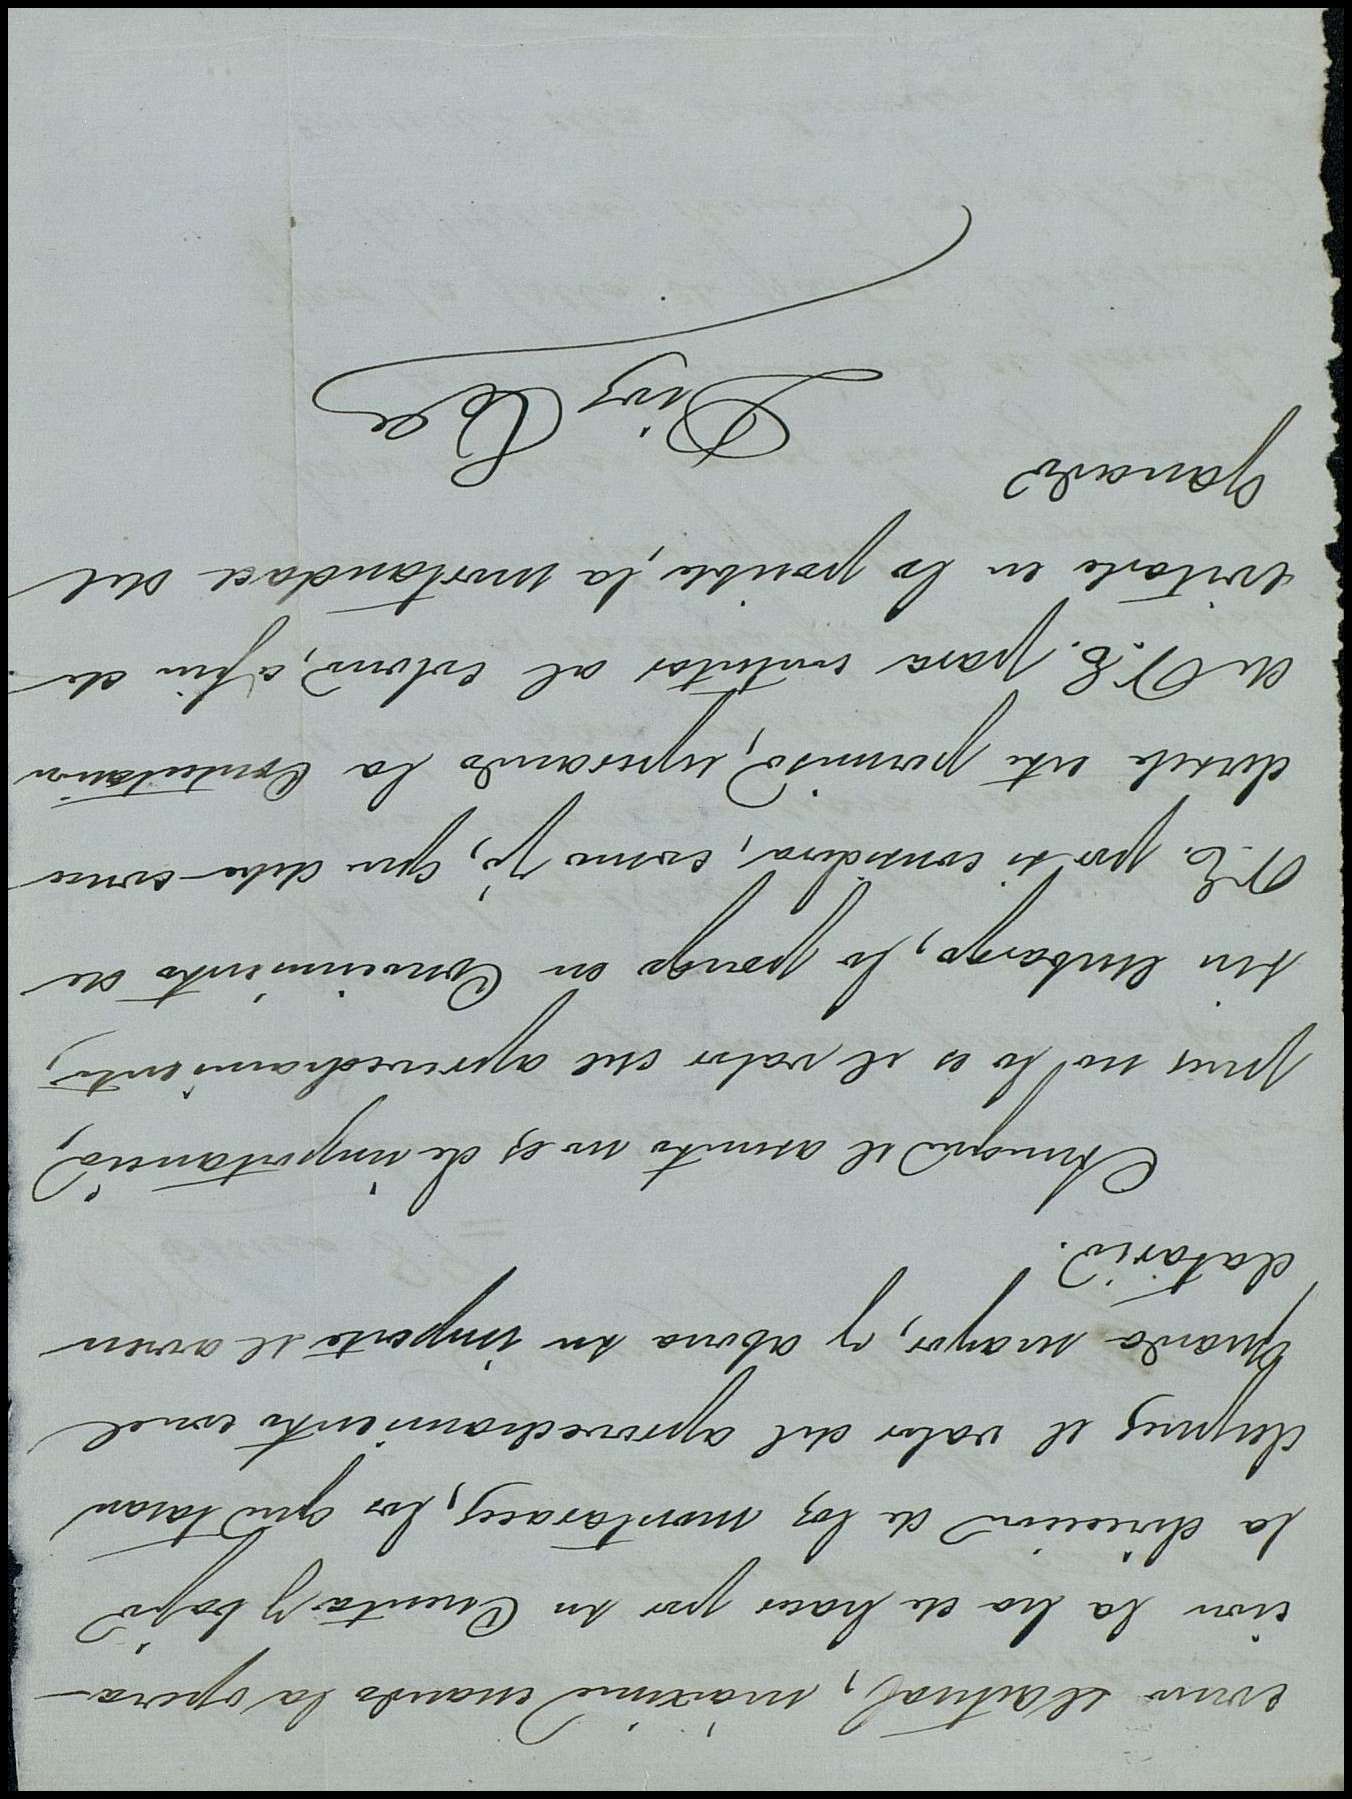 como el actual, máxime cuando la opera-
cion la ha de hacer por su Cuenta y bajo
la dirección de los montaraces, los que tasan
despues el valor del aprovechamiento con el
Guarda mayor, y abona su importe el arren
datario.
Aunque el asunto no es de importancia,
pues no lo es el valor del aprovechamiento,
sin embargo, lo pongo en Conocimiento de
V.E. por si considera, como yo, que debe conce
dersele este permiso, esperando la Contestacion
de V.E. para contestar al colono, a fin de
evitarle en lo posible, la mortandad del
Ganado
Diaz